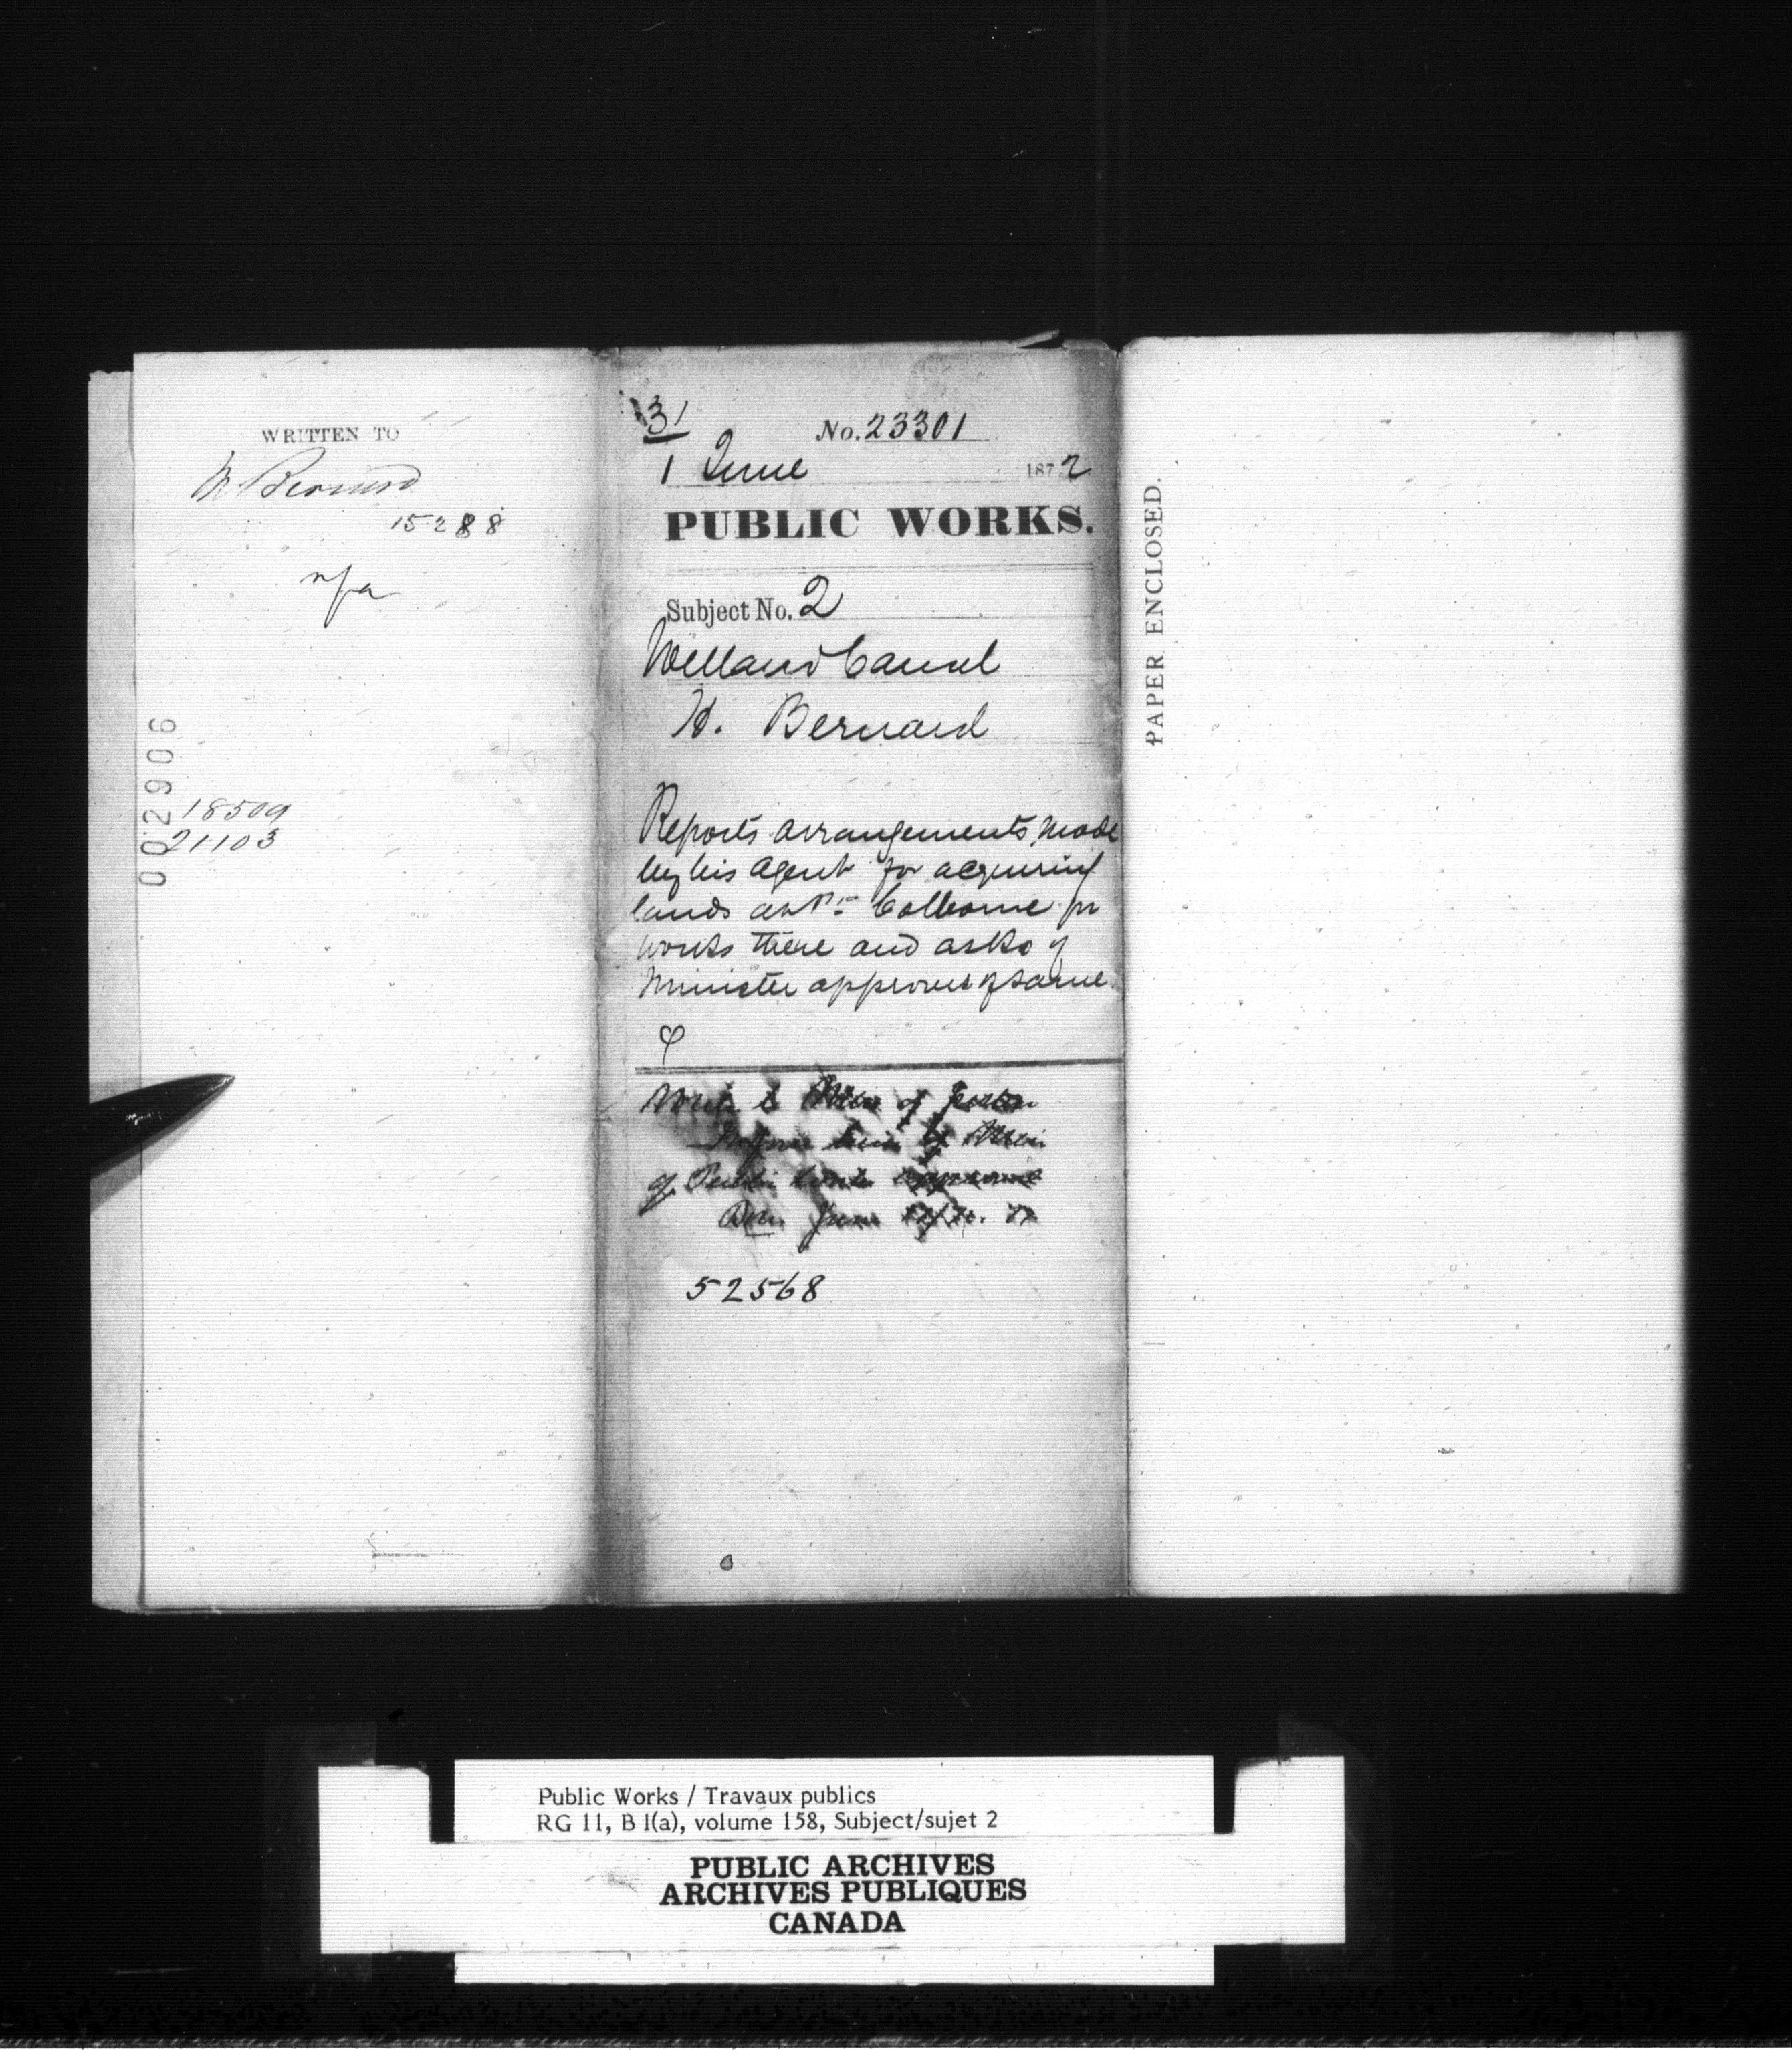 WRITTEN TO
Bernard
15288
nfa
002906
18509
21103
31
No. 23301
1 June 1872
PUBLIC WORKS.
Subject No. 2
Welland Canal
H. Bernard
Reports arrangements made
by his Agent for acquiring
lands at Pt. Colborne for
works there and asks if
Minister approves of same.
Write to Min of Justice
Inform him of Min
of Public Works
June
52568
PAPER ENCLOSED.
Public Works / Travaux publics
RG 11, B 1(a), volume 158, Subject/sujet 2
PUBLIC ARCHIVES
ARCHIVES PUBLIQUES
CANADA